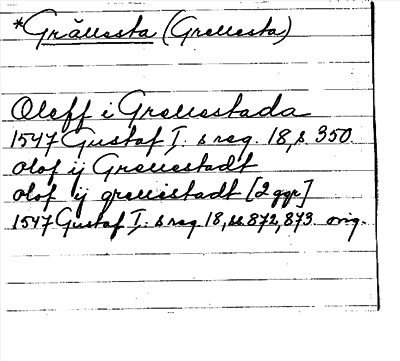 *Grällsta (Grellesta)
Oleff i Grellestada
1547 Gustaf I:s reg. 18, s. 350.
olof ij Grellestadt
olof ij grellestadt [2 ggr]
1547 Gustaf I:s reg 18, ss. 872, 873. orig.